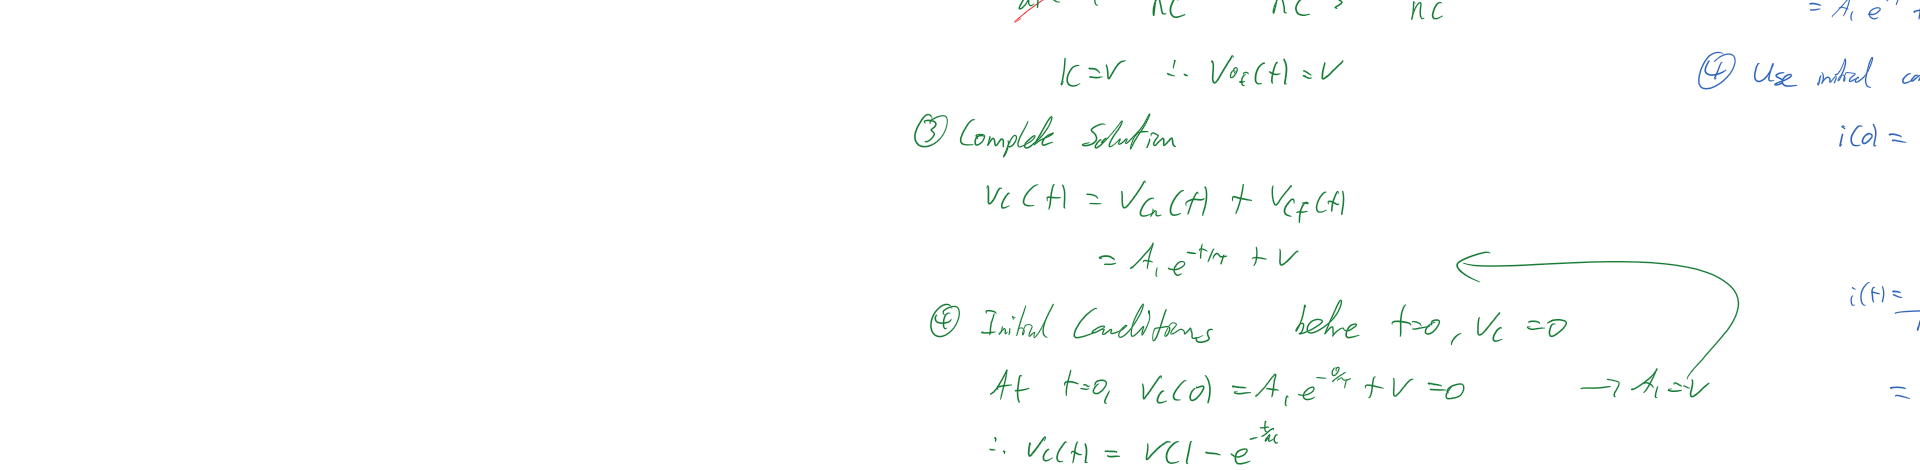 RC RC RC
K=V ∴ Vof(t) = V
③ Complete Solution
Vc(t) = VCn(t) + VCf(t)
= A₁e^(-t/τ) + V
④ Initial Conditions before t=0, Vc = 0
At t=0, Vc(0) = A₁e^(-0/τ) + V = 0 → A₁=-V
∴ Vc(t) = V(1 - e^(-t/RC)
= A₁e
④ Use initial
i(0) =
i(t) =
=